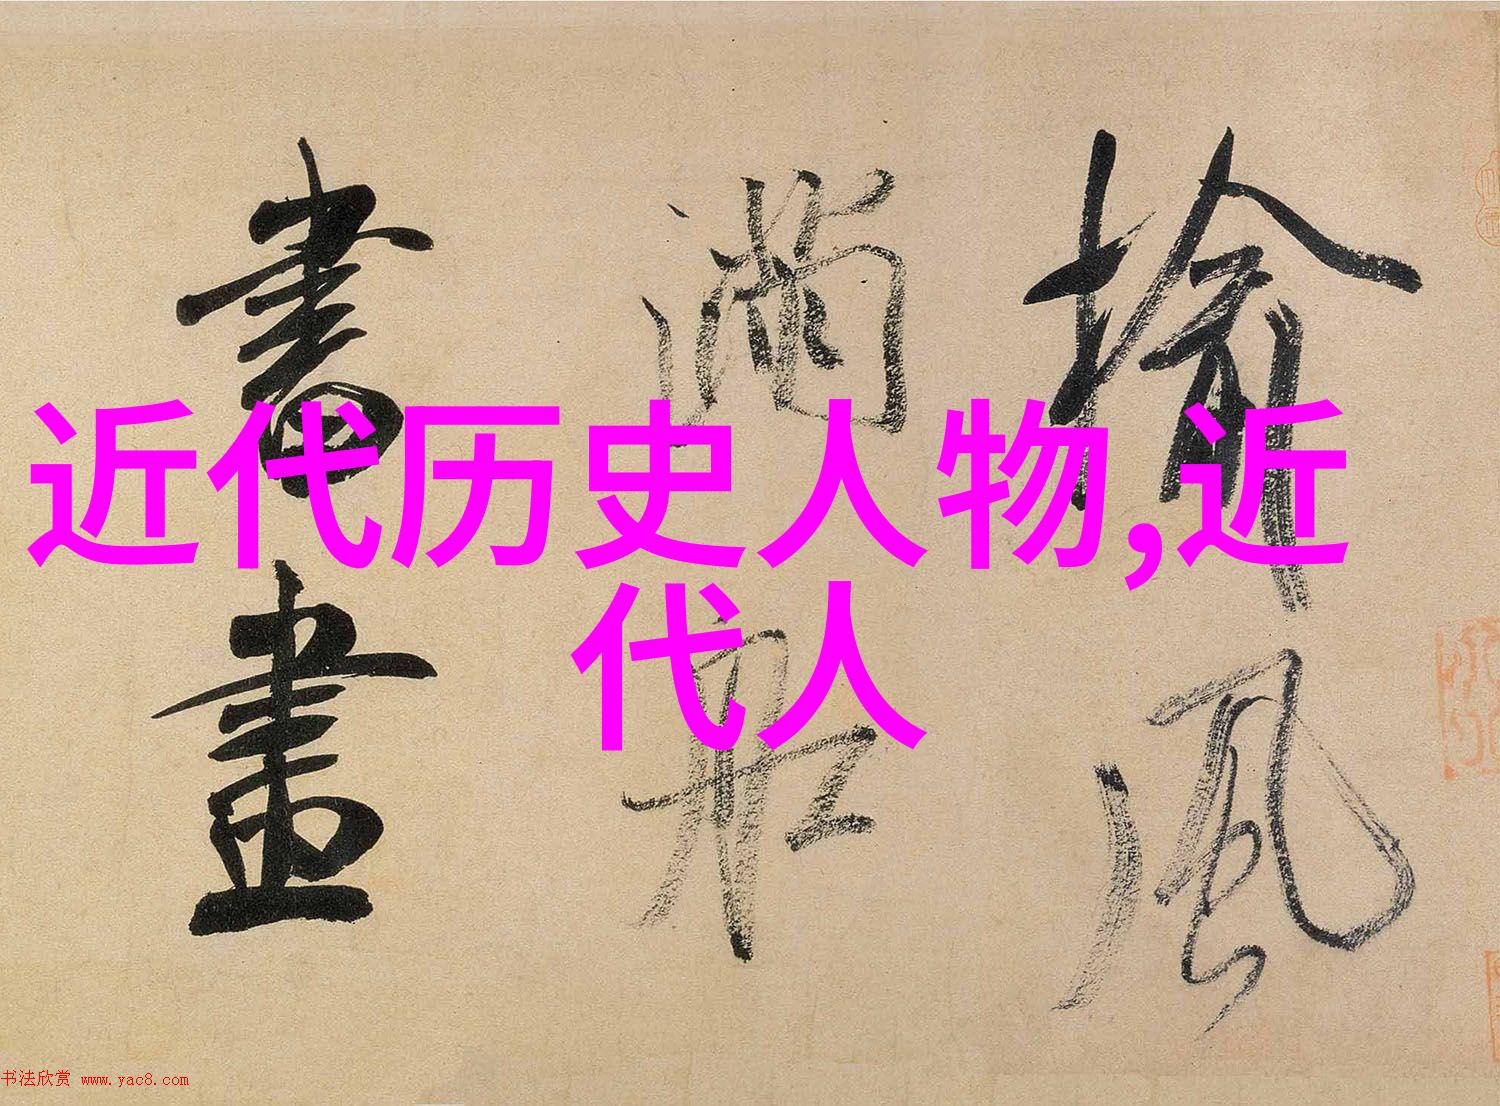 近代历史人物,近
代人
榆風
滿船
書畫
书法欣赏 www.yac8.com